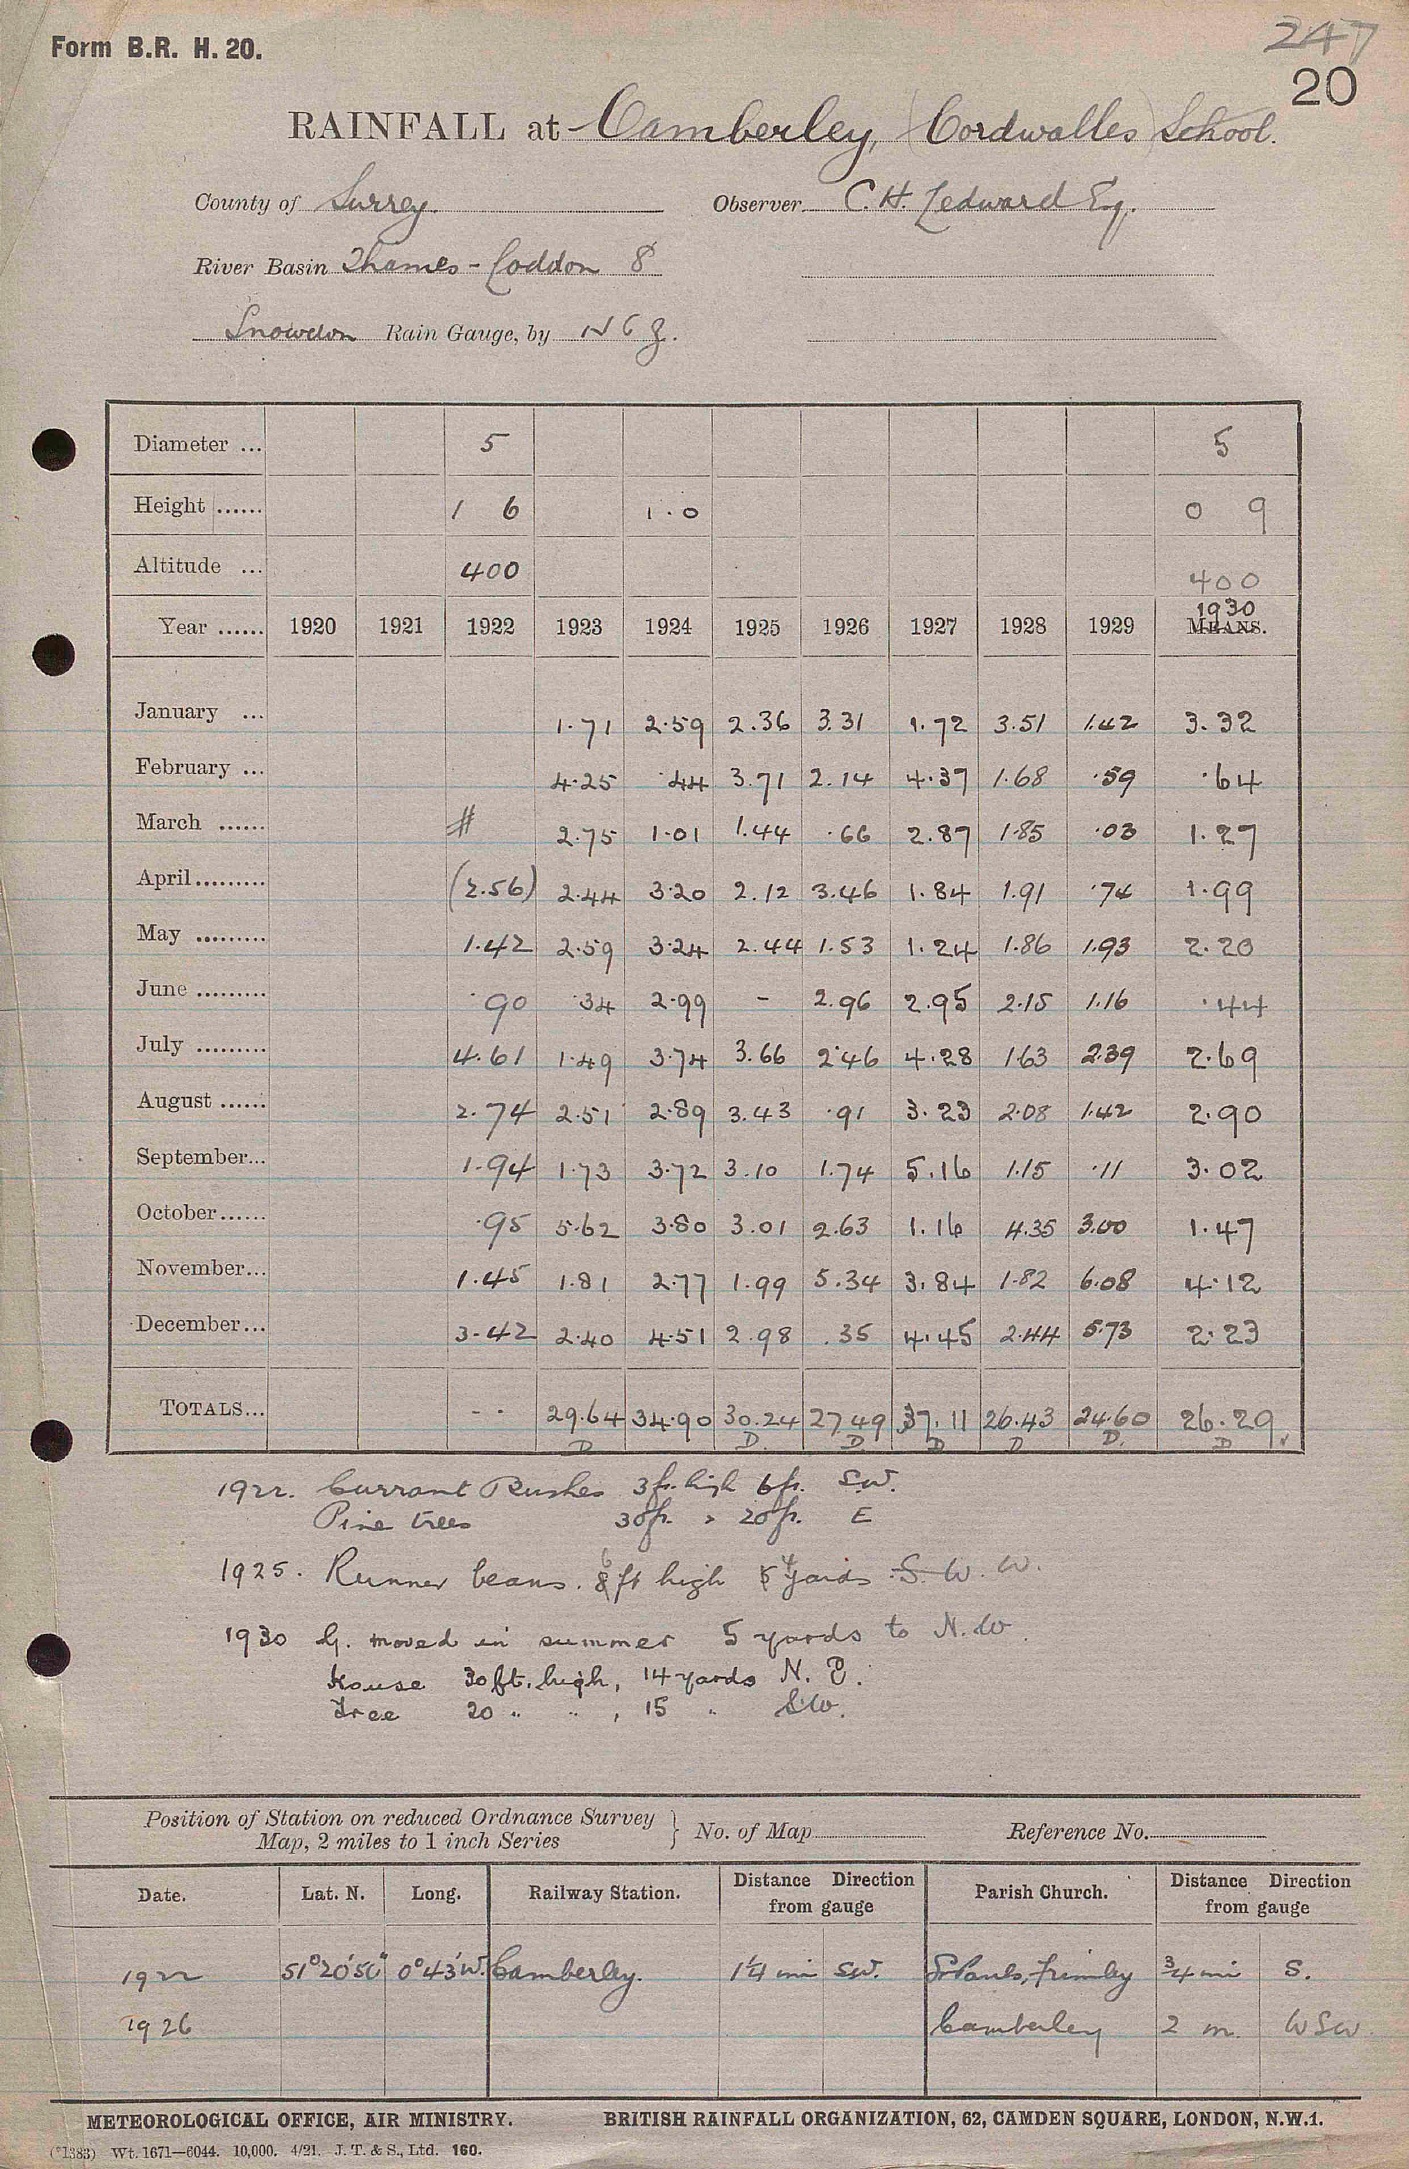 247
Form B.R. H. 20.
20
RAINFALL at Camberley, (Cordwalles) School.
County of Surrey. Observer C. H. Ledward Esq.
River Basin Thames - Loddon 8
Snowdon Rain Gauge, by N & Z.
Diameter ... 5 5
Height ...... 1 6 1.0 0 9
Altitude ... 400 400
1930
Year ...... 1920 1921 1922 1923 1924 1925 1926 1927 1928 1929 MEANS.
January ... 1.71 2.59 2.36 3.31 1.72 3.51 1.42 3.32
February ... 4.25 .44 3.71 2.14 4.37 1.68 .59 .64
March ...... # 2.75 1.01 1.44 .66 2.87 1.85 .03 1.27
April......... (2.56) 2.44 3.20 2.12 3.46 1.84 1.91 .74 1.99
May ......... 1.42 2.59 3.24 2.44 1.53 1.24 1.86 1.93 2.20
June ......... .90 .34 2.99 - 2.96 2.95 2.15 1.16 .44
July ......... 4.61 1.49 3.74 3.66 2.46 4.28 1.63 2.39 2.69
August ...... 2.74 2.51 2.89 3.43 .91 3.23 2.08 1.42 2.90
September... 1.94 1.73 3.72 3.10 1.74 5.16 1.15 .11 3.02
October...... .95 5.62 3.80 3.01 2.63 1.16 4.35 3.00 1.47
November... 1.45 1.81 2.77 1.99 5.34 3.84 1.82 6.08 4.12
December... 3.42 2.40 4.51 2.98 .35 4.45 2.44 5.73 2.23
TOTALS... - - 29.64 34.90 30.24 27.49 37.11 26.43 24.60 26.29
D D. D. D D D. D
1922. Currant Bushes 3ft. high 6ft. S.W.
Pine trees 30ft. " 20ft. E
1925. Runner beans. 6 ft high 4 yards S. W. W.
1930 G. moved in summer 5 yards to N.W.
House 30ft. high, 14 yards N. E.
Tree 20 " " , 15 " S.W.
Position of Station on reduced Ordnance Survey
Map, 2 miles to 1 inch Series } No. of Map Reference No.
Date. Lat. N. Long. Railway Station. Distance Direction from gauge Parish Church. Distance Direction from gauge
1922 51°20'50" 0°43'W. Camberley. 1¼ mi SW. St Pauls, Frimley ¾ mi S.
1926 Camberley 2 m. WSW
METEOROLOGICAL OFFICE, AIR MINISTRY. BRITISH RAINFALL ORGANIZATION, 62, CAMDEN SQUARE, LONDON, N.W.1.
(*1383) Wt. 1671—6044. 10,000. 4/21. J. T. & S., Ltd. 160.